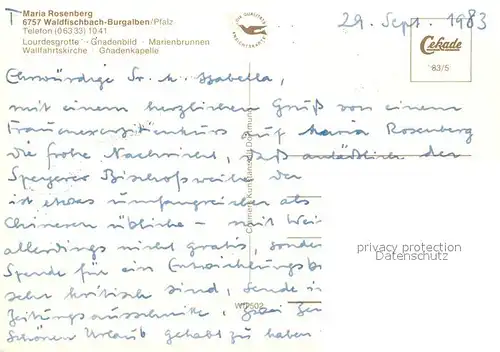 Maria Rosenberg
6757 Waldfischbach-Burgalben/Pfalz
Telefon (06333) 1041
Lourdesgrotte · Gnadenbild · Marienbrunnen
Wallfahrtskirche · Gnadenkapelle
29. Sept. 1983
Cekade
83/5
Ehrwürdige Sr. M. Isabella,
mit einem herzlichen Gruß von einem
Frauenexerzitienkurs auf Maria Rosenberg
die frohe Nachricht, daß anläßlich der
Speyerer Bischofsweihe der
ist etwas umfangreicher als
Chinesen übliche - mit Wei
allerdings nicht gratis, sonder
Spende für ein Entwicklungsp
sehr kritisch sind, sende in
Zeitungsausschnitte, zwei Zei
Schönen Urlaub gehabt zu haben
privacy protection
Datenschutz